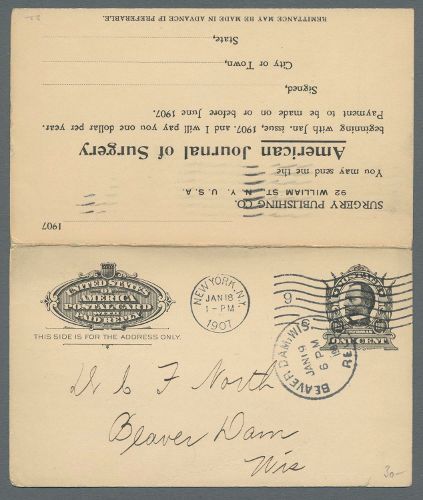 1907
SURGERY PUBLISHING CO.
92 WILLIAM ST., N. Y., U. S. A.
You may send me the
American Journal of Surgery
beginning with Jan. issue, 1907. and I will pay you one dollar per year.
Payment to be made on or before June 1907.
Signed,
City or Town,
State,
REMITTANCE MAY BE MADE IN ADVANCE IF PREFERABLE.
UNITED STATES
OF
AMERICA
POSTAL CARD
WITH
PAID REPLY.
THIS SIDE IS FOR THE ADDRESS ONLY.
NEW YORK, N.Y.
JAN 18
1-PM
1907
6
ONE CENT
BEAVER DAM, WIS.
JAN 19
6 PM
Dr C F North
Beaver Dam
Wis
30-